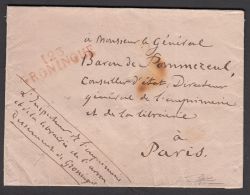 123
GRONINGUE
à Monsieur le Général
Baron de Pommereul,
Conseiller d'état, Directeur
général de l'imprimerie
et de la librairie
à
Paris.
L'Inspecteur de l'imprimerie
et de la librairie de
Département de Groningue